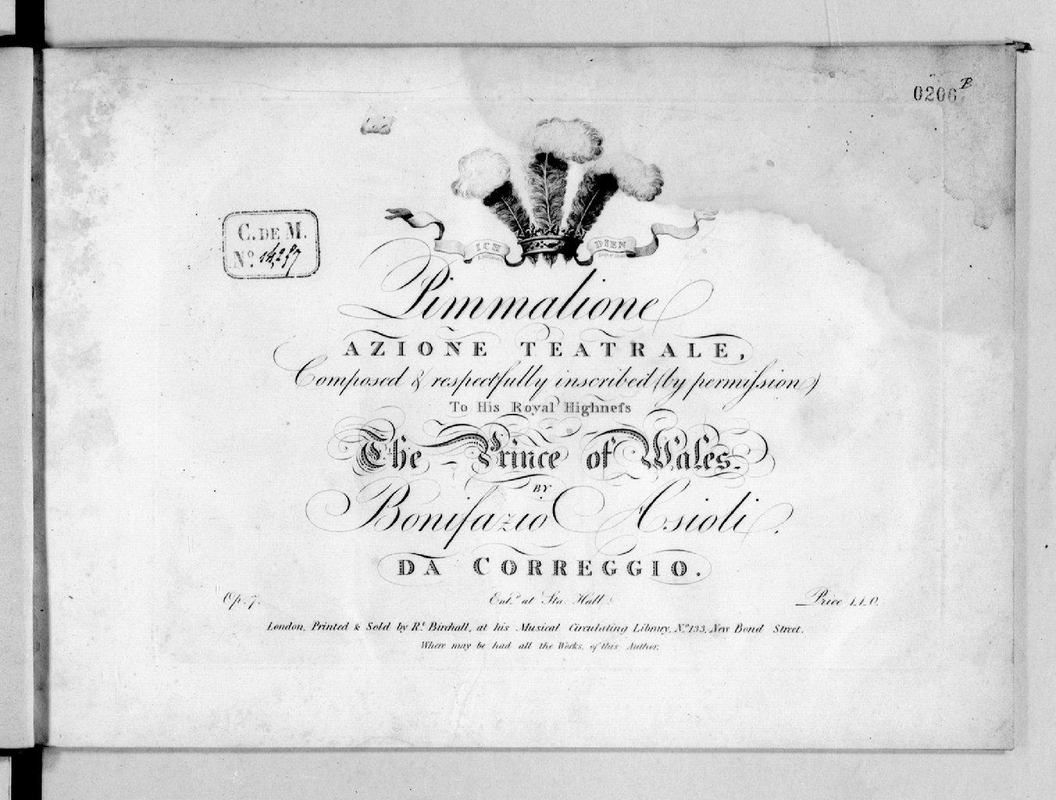 0206
C. DE M.
Nº
ICH DIEN
Pimmalione
AZIONE TEATRALE,
Composed & respectfully inscribed (by permiſsion)
To His Royal Highneſs
The Prince of Wales.
BY
Bonifazio Asioli.
DA CORREGGIO.
Op. 7. Ent.d at Sta. Hall. Price 1.1.0.
London, Printed & Sold by R.t Birchall, at his Musical Circulating Library, Nº 133, New Bond Street.
Where may be had all the Works, of this Author.